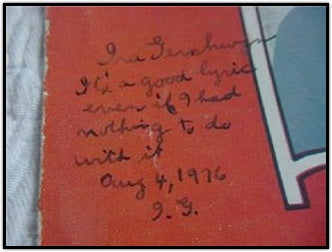 Ira Gershwin
It's a good lyric
even if I had
nothing to do
with it
Aug 4, 1976
I. G.